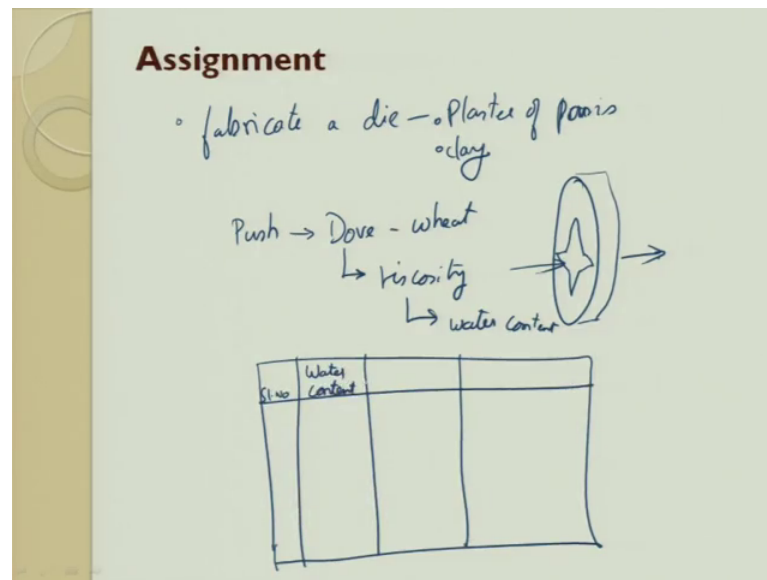 Assignment
• fabricate a die – • Plaster of paris
• clay
Push → Dove - wheat
↳ viscosity
↳ water content
Sl.No
Water
content